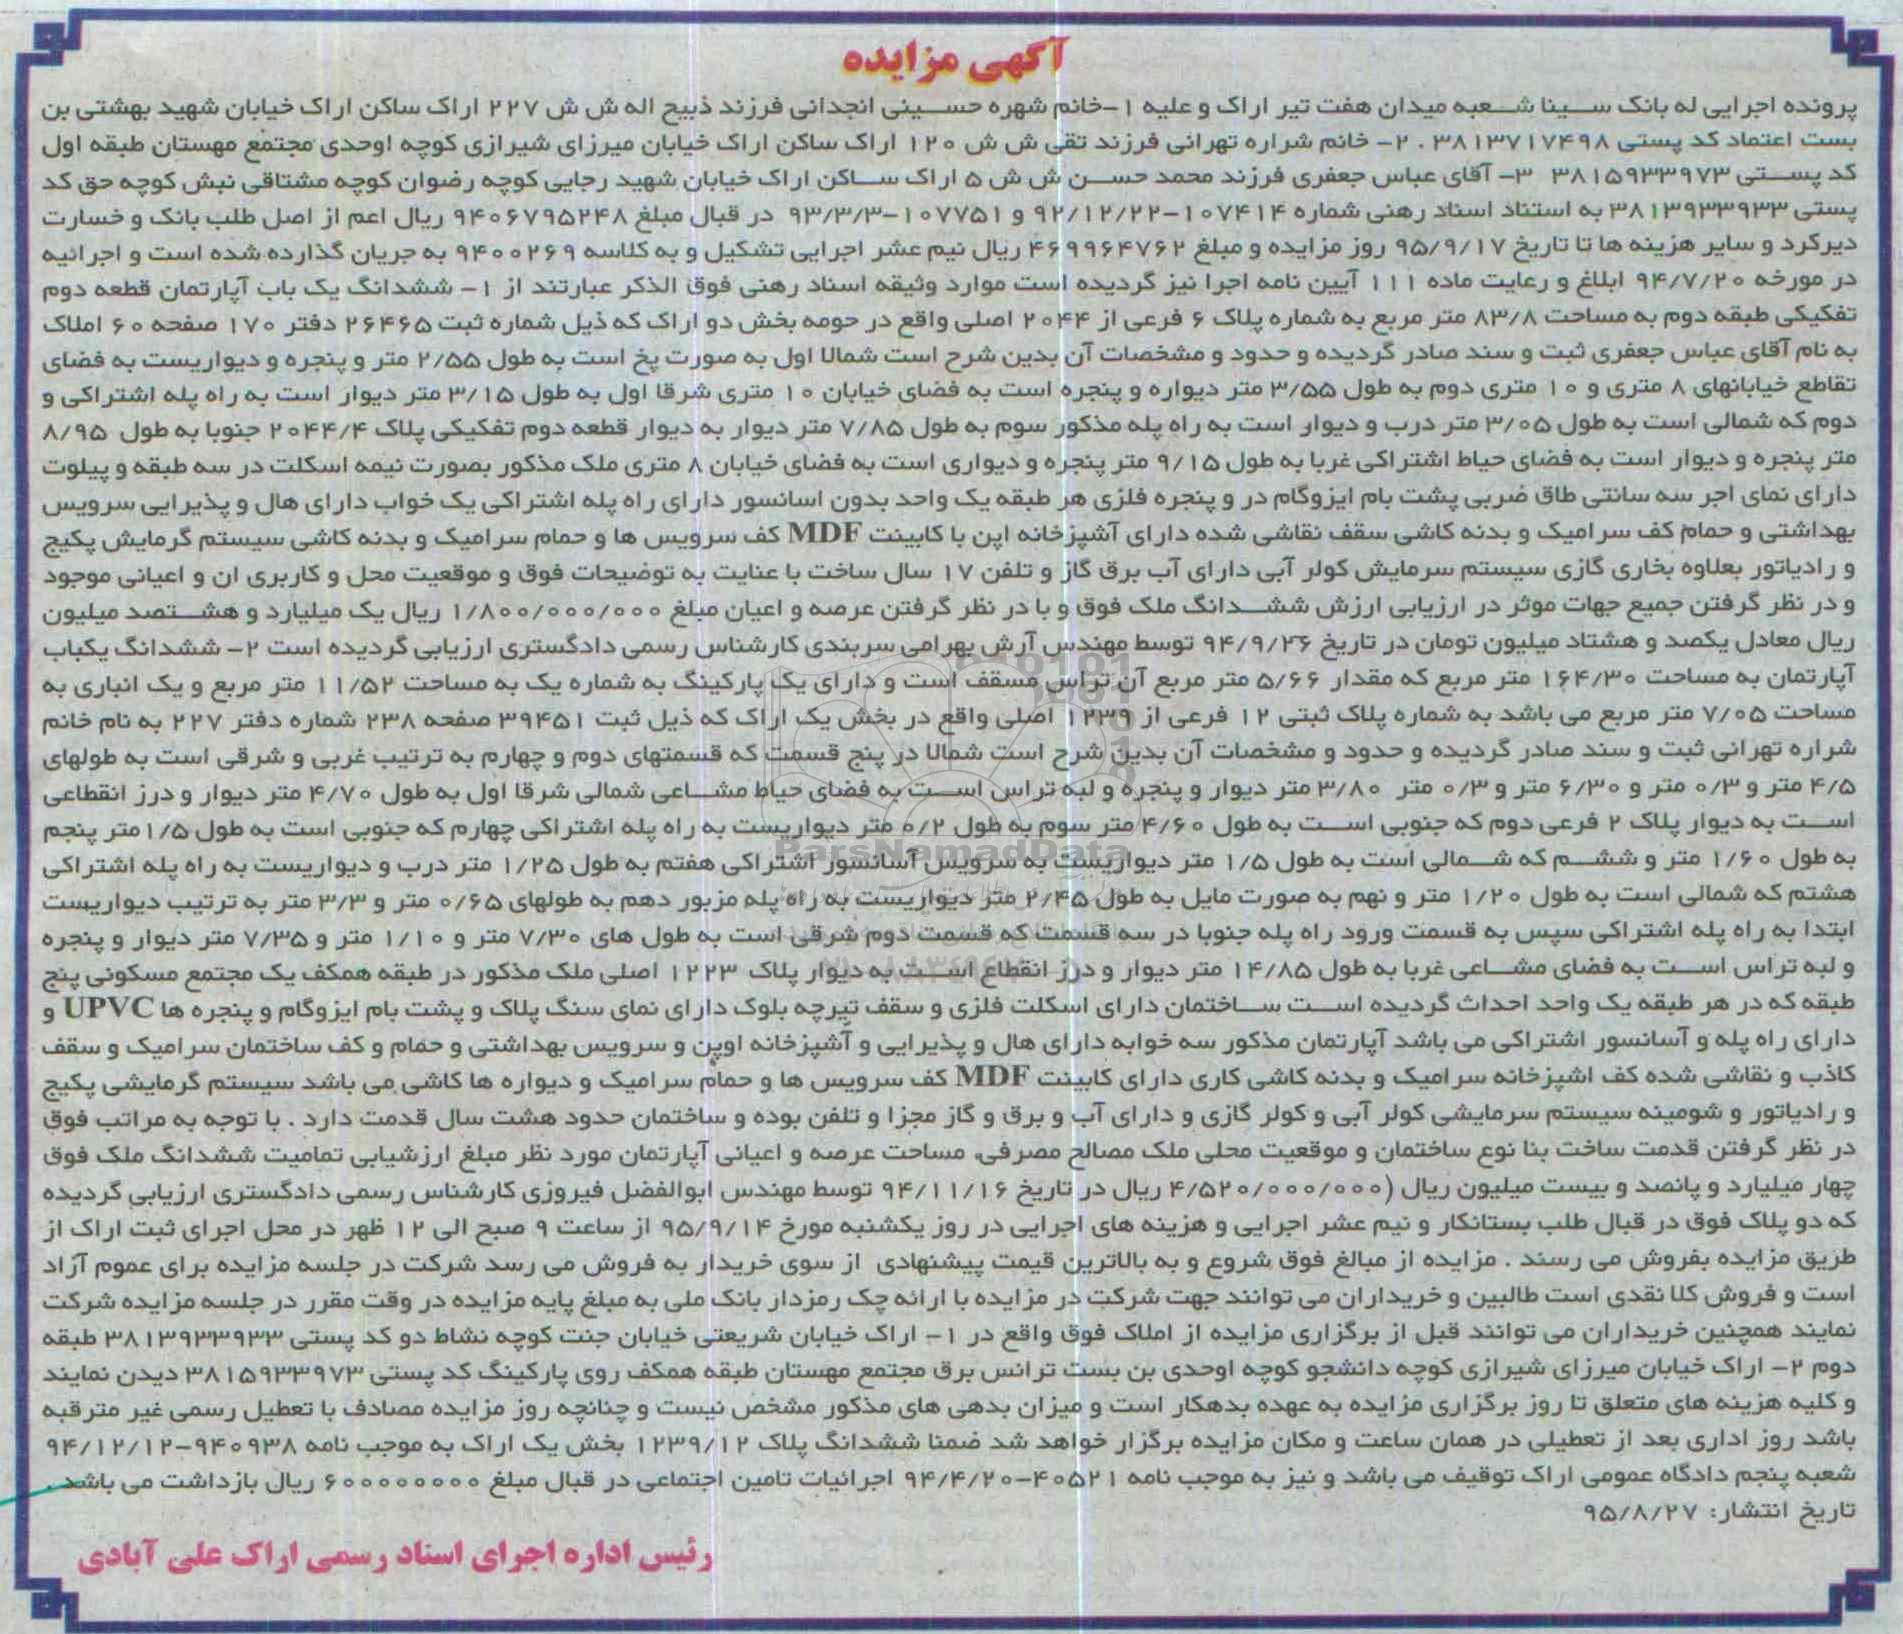 آگهی مزایده
پرونده اجرایی له بانک سینا شعبه میدان هفت تیر اراک و علیه ۱-خانم شهره حسینی انجدانی فرزند ذبیح اله ش ش ۲۲۷ اراک ساکن اراک خیابان شهید بهشتی بن
بست اعتماد کد پستی ۳۸۱۳۷۱۷۴۹۸ . ۲- خانم شراره تهرانی فرزند تقی ش ش ۱۲۰ اراک ساکن اراک خیابان میرزای شیرازی کوچه اوحدی مجتمع مهستان طبقه اول
کد پستی ۳۸۱۵۹۳۳۹۷۳ ۳- آقای عباس جعفری فرزند محمد حسن ش ش ۵ اراک ساکن اراک خیابان شهید رجایی کوچه رضوان کوچه مشتاقی نبش کوچه حق کد
پستی ۳۸۱۳۹۳۳۹۳۳ به استناد اسناد رهنی شماره ۱۰۷۴۱۴-۹۲/۱۲/۲۲ و ۱۰۷۷۵۱-۹۳/۳/۳ در قبال مبلغ ۹۴۰۶۷۹۵۲۴۸ ریال اعم از اصل طلب بانک و خسارت
دیرکرد و سایر هزینه ها تا تاریخ ۹۵/۹/۱۷ روز مزایده و مبلغ ۴۶۹۹۶۴۷۶۲ ریال نیم عشر اجرایی تشکیل و به کلاسه ۹۴۰۰۲۶۹ به جریان گذارده شده است و اجرائیه
در مورخه ۹۴/۷/۲۰ ابلاغ و رعایت ماده ۱۱۱ آیین نامه اجرا نیز گردیده است موارد وثیقه اسناد رهنی فوق الذکر عبارتند از ۱- ششدانگ یک باب آپارتمان قطعه دوم
تفکیکی طبقه دوم به مساحت ۸۳/۸ متر مربع به شماره پلاک ۶ فرعی از ۲۰۴۴ اصلی واقع در حومه بخش دو اراک که ذیل شماره ثبت ۲۶۴۶۵ دفتر ۱۷۰ صفحه ۶۰ املاک
به نام آقای عباس جعفری ثبت و سند صادر گردیده و حدود و مشخصات آن بدین شرح است شمالا اول به صورت پخ است به طول ۲/۵۵ متر و پنجره و دیواریست به فضای
تقاطع خیابانهای ۸ متری و ۱۰ متری دوم به طول ۳/۵۵ متر دیواره و پنجره است به فضای خیابان ۱۰ متری شرقا اول به طول ۳/۱۵ متر دیوار است به راه پله اشتراکی و
دوم که شمالی است به طول ۳/۰۵ متر درب و دیوار است به راه پله مذکور سوم به طول ۷/۸۵ متر دیوار به دیوار قطعه دوم تفکیکی پلاک ۲۰۴۴/۴ جنوبا به طول ۸/۹۵
متر پنجره و دیوار است به فضای حیاط اشتراکی غربا به طول ۹/۱۵ متر پنجره و دیواری است به فضای خیابان ۸ متری ملک مذکور بصورت نیمه اسکلت در سه طبقه و پیلوت
دارای نمای اجر سه سانتی طاق ضربی پشت بام ایزوگام در و پنجره فلزی هر طبقه یک واحد بدون اسانسور دارای راه پله اشتراکی یک خواب دارای هال و پذیرایی سرویس
بهداشتی و حمام کف سرامیک و بدنه کاشی سقف نقاشی شده دارای آشپزخانه اپن با کابینت MDF کف سرویس ها و حمام سرامیک و بدنه کاشی سیستم گرمایش پکیج
و رادیاتور بعلاوه بخاری گازی سیستم سرمایش کولر آبی دارای آب برق گاز و تلفن ۱۷ سال ساخت با عنایت به توضیحات فوق و موقعیت محل و کاربری ان و اعیانی موجود
و در نظر گرفتن جمیع جهات موثر در ارزیابی ارزش ششدانگ ملک فوق و با در نظر گرفتن عرصه و اعیان مبلغ ۱/۸۰۰/۰۰۰/۰۰۰ ریال یک میلیارد و هشتصد میلیون
ریال معادل یکصد و هشتاد میلیون تومان در تاریخ ۹۴/۹/۲۶ توسط مهندس آرش بهرامی سربندی کارشناس رسمی دادگستری ارزیابی گردیده است ۲- ششدانگ یکباب
آپارتمان به مساحت ۱۶۴/۳۰ متر مربع که مقدار ۵/۶۶ متر مربع آن تراس مسقف است و دارای یک پارکینگ به شماره یک به مساحت ۱۱/۵۲ متر مربع و یک انباری به
مساحت ۷/۰۵ متر مربع می باشد به شماره پلاک ثبتی ۱۲ فرعی از ۱۲۳۹ اصلی واقع در بخش یک اراک که ذیل ثبت ۳۹۴۵۱ صفحه ۲۳۸ شماره دفتر ۲۲۷ به نام خانم
شراره تهرانی ثبت و سند صادر گردیده و حدود و مشخصات آن بدین شرح است شمالا در پنج قسمت که قسمتهای دوم و چهارم به ترتیب غربی و شرقی است به طولهای
۴/۵ متر و ۰/۳ متر و ۶/۳۰ متر و ۰/۳ متر ۳/۸۰ متر دیوار و پنجره و لبه تراس است به فضای حیاط مشاعی شمالی شرقا اول به طول ۴/۷۰ متر دیوار و درز انقطاعی
است به دیوار پلاک ۲ فرعی دوم که جنوبی است به طول ۴/۶۰ متر سوم به طول ۰/۲ متر دیواریست به راه پله اشتراکی چهارم که جنوبی است به طول ۱/۵ متر پنجم
به طول ۱/۶۰ متر و ششم که شمالی است به طول ۱/۵ متر دیواریست به سرویس آسانسور اشتراکی هفتم به طول ۱/۲۵ متر درب و دیواریست به راه پله اشتراکی
هشتم که شمالی است به طول ۱/۲۰ متر و نهم به صورت مایل به طول ۲/۴۵ متر دیواریست به راه پله مزبور دهم به طولهای ۰/۶۵ متر و ۳/۳ متر به ترتیب دیواریست
ابتدا به راه پله اشتراکی سپس به قسمت ورود راه پله جنوبا در سه قسمت که قسمت دوم شرقی است به طول های ۷/۳۰ متر و ۱/۱۰ متر و ۷/۳۵ متر دیوار و پنجره
و لبه تراس است به فضای مشاعی غربا به طول ۱۴/۸۵ متر دیوار و درز انقطاع است به دیوار پلاک ۱۲۲۳ اصلی ملک مذکور در طبقه همکف یک مجتمع مسکونی پنج
طبقه که در هر طبقه یک واحد احداث گردیده است ساختمان دارای اسکلت فلزی و سقف تیرچه بلوک دارای نمای سنگ پلاک و پشت بام ایزوگام و پنجره ها UPVC و
دارای راه پله و آسانسور اشتراکی می باشد آپارتمان مذکور سه خوابه دارای هال و پذیرایی و آشپزخانه اوپن و سرویس بهداشتی و حمام و کف ساختمان سرامیک و سقف
کاذب و نقاشی شده کف اشپزخانه سرامیک و بدنه کاشی کاری دارای کابینت MDF کف سرویس ها و حمام سرامیک و دیواره ها کاشی می باشد سیستم گرمایشی پکیج
و رادیاتور و شومینه سیستم سرمایشی کولر آبی و کولر گازی و دارای آب و برق و گاز مجزا و تلفن بوده و ساختمان حدود هشت سال قدمت دارد . با توجه به مراتب فوق
در نظر گرفتن قدمت ساخت بنا نوع ساختمان و موقعیت محلی ملک مصالح مصرفی، مساحت عرصه و اعیانی آپارتمان مورد نظر مبلغ ارزشیابی تمامیت ششدانگ ملک فوق
چهار میلیارد و پانصد و بیست میلیون ریال (۴/۵۲۰/۰۰۰/۰۰۰ ریال در تاریخ ۹۴/۱۱/۱۶ توسط مهندس ابوالفضل فیروزی کارشناس رسمی دادگستری ارزیابی گردیده
که دو پلاک فوق در قبال طلب بستانکار و نیم عشر اجرایی و هزینه های اجرایی در روز یکشنبه مورخ ۹۵/۹/۱۴ از ساعت ۹ صبح الی ۱۲ ظهر در محل اجرای ثبت اراک از
طریق مزایده بفروش می رسند . مزایده از مبالغ فوق شروع و به بالاترین قیمت پیشنهادی از سوی خریدار به فروش می رسد شرکت در جلسه مزایده برای عموم آزاد
است و فروش کلا نقدی است طالبین و خریداران می توانند جهت شرکت در مزایده با ارائه چک رمزدار بانک ملی به مبلغ پایه مزایده در وقت مقرر در جلسه مزایده شرکت
نمایند همچنین خریداران می توانند قبل از برگزاری مزایده از املاک فوق واقع در ۱- اراک خیابان شریعتی خیابان جنت کوچه نشاط دو کد پستی ۳۸۱۳۹۳۳۹۳۳ طبقه
دوم ۲- اراک خیابان میرزای شیرازی کوچه دانشجو کوچه اوحدی بن بست ترانس برق مجتمع مهستان طبقه همکف روی پارکینگ کد پستی ۳۸۱۵۹۳۳۹۷۳ دیدن نمایند
و کلیه هزینه های متعلق تا روز برگزاری مزایده به عهده بدهکار است و میزان بدهی های مذکور مشخص نیست و چنانچه روز مزایده مصادف با تعطیل رسمی غیر مترقبه
باشد روز اداری بعد از تعطیلی در همان ساعت و مکان مزایده برگزار خواهد شد ضمنا ششدانگ پلاک ۱۲۳۹/۱۲ بخش یک اراک به موجب نامه ۹۴۰۹۳۸-۹۴/۱۲/۱۲
شعبه پنجم دادگاه عمومی اراک توقیف می باشد و نیز به موجب نامه ۴۰۵۲۱-۹۴/۴/۲۰ اجرائیات تامین اجتماعی در قبال مبلغ ۶۰۰۰۰۰۰۰۰ ریال بازداشت می باشد .
تاریخ انتشار: ۹۵/۸/۲۷
رئیس اداره اجرای اسناد رسمی اراک علی آبادی
ParsNamadData